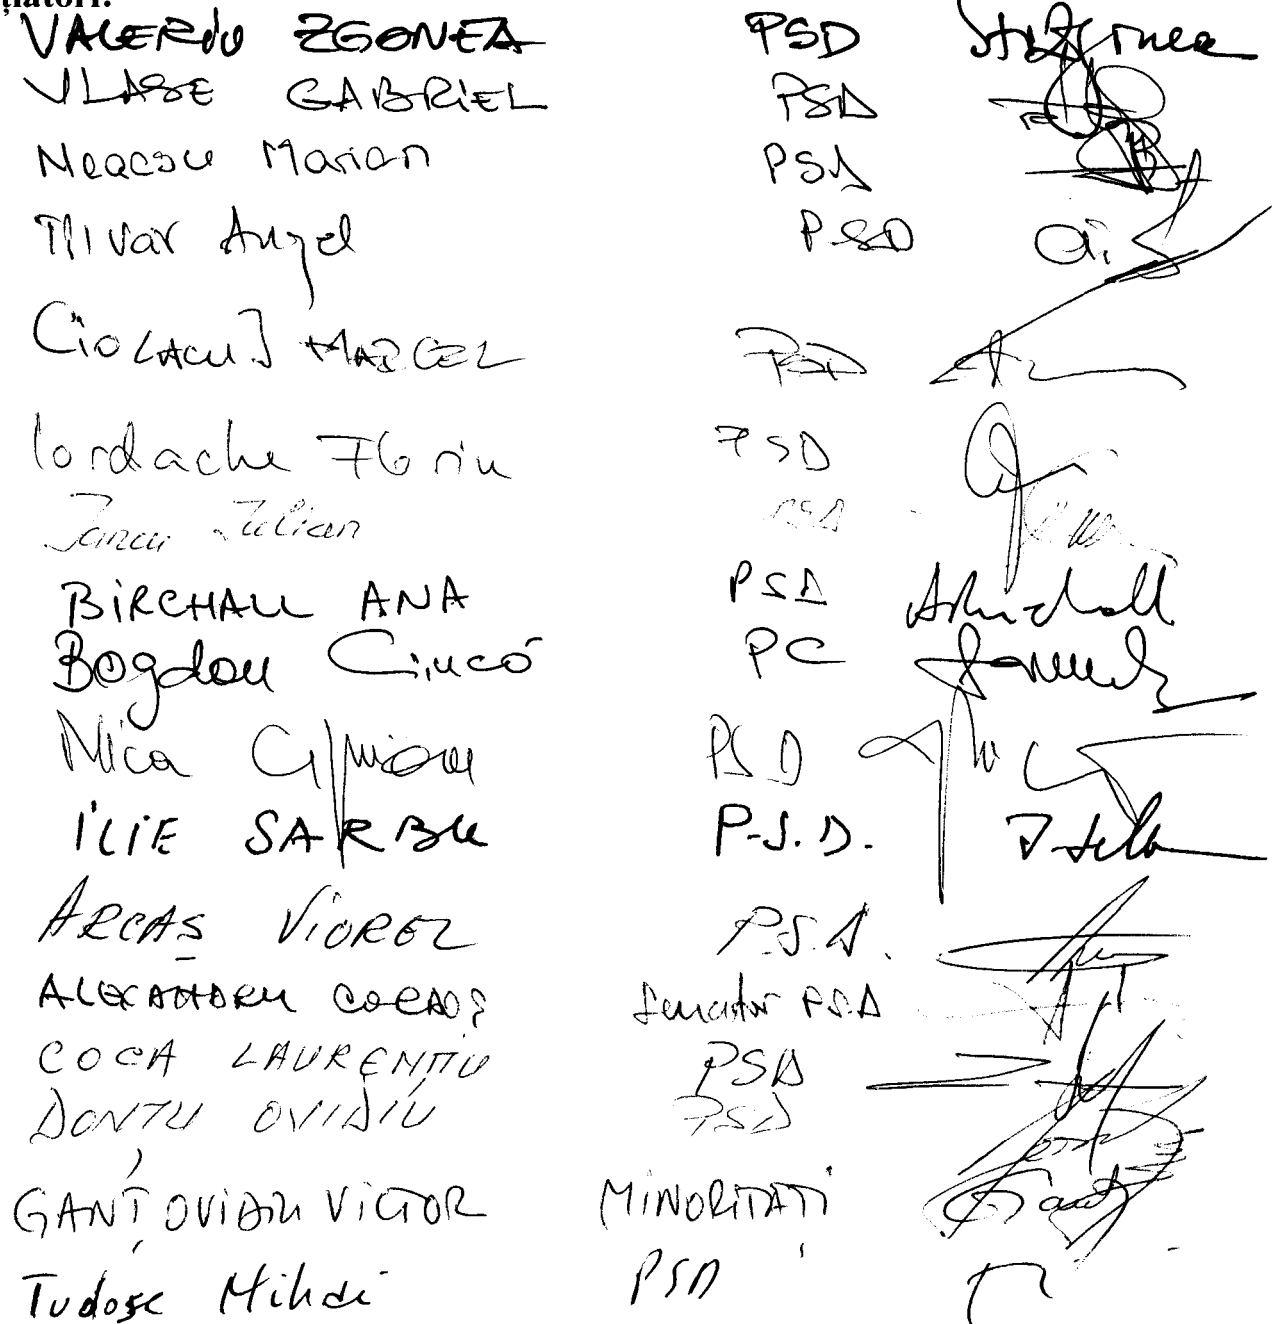 țiatori:
VALERIU ZGONEA PSD
VLASE GABRIEL PSD
Neacsu Marian PSD
Tîlvăr Angel PSD
CIOLACU I MARCEL PSD
Iordache Florin PSD
Iancu Iulian PSD
BIRCHALL ANA PSD ABirchall
Bogdan Ciucă PC
Nica Ciprian PSD
ILIE SARBU P.S.D.
ARCAȘ VIOREL P.S.D.
ALEXANDRU CORDOȘ Senator PSD
COCA LAURENȚIU PSD
DONȚU OVIDIU PSD
GANȚ OVIDIU VICTOR MINORITĂȚI
Tudose Mihai PSD